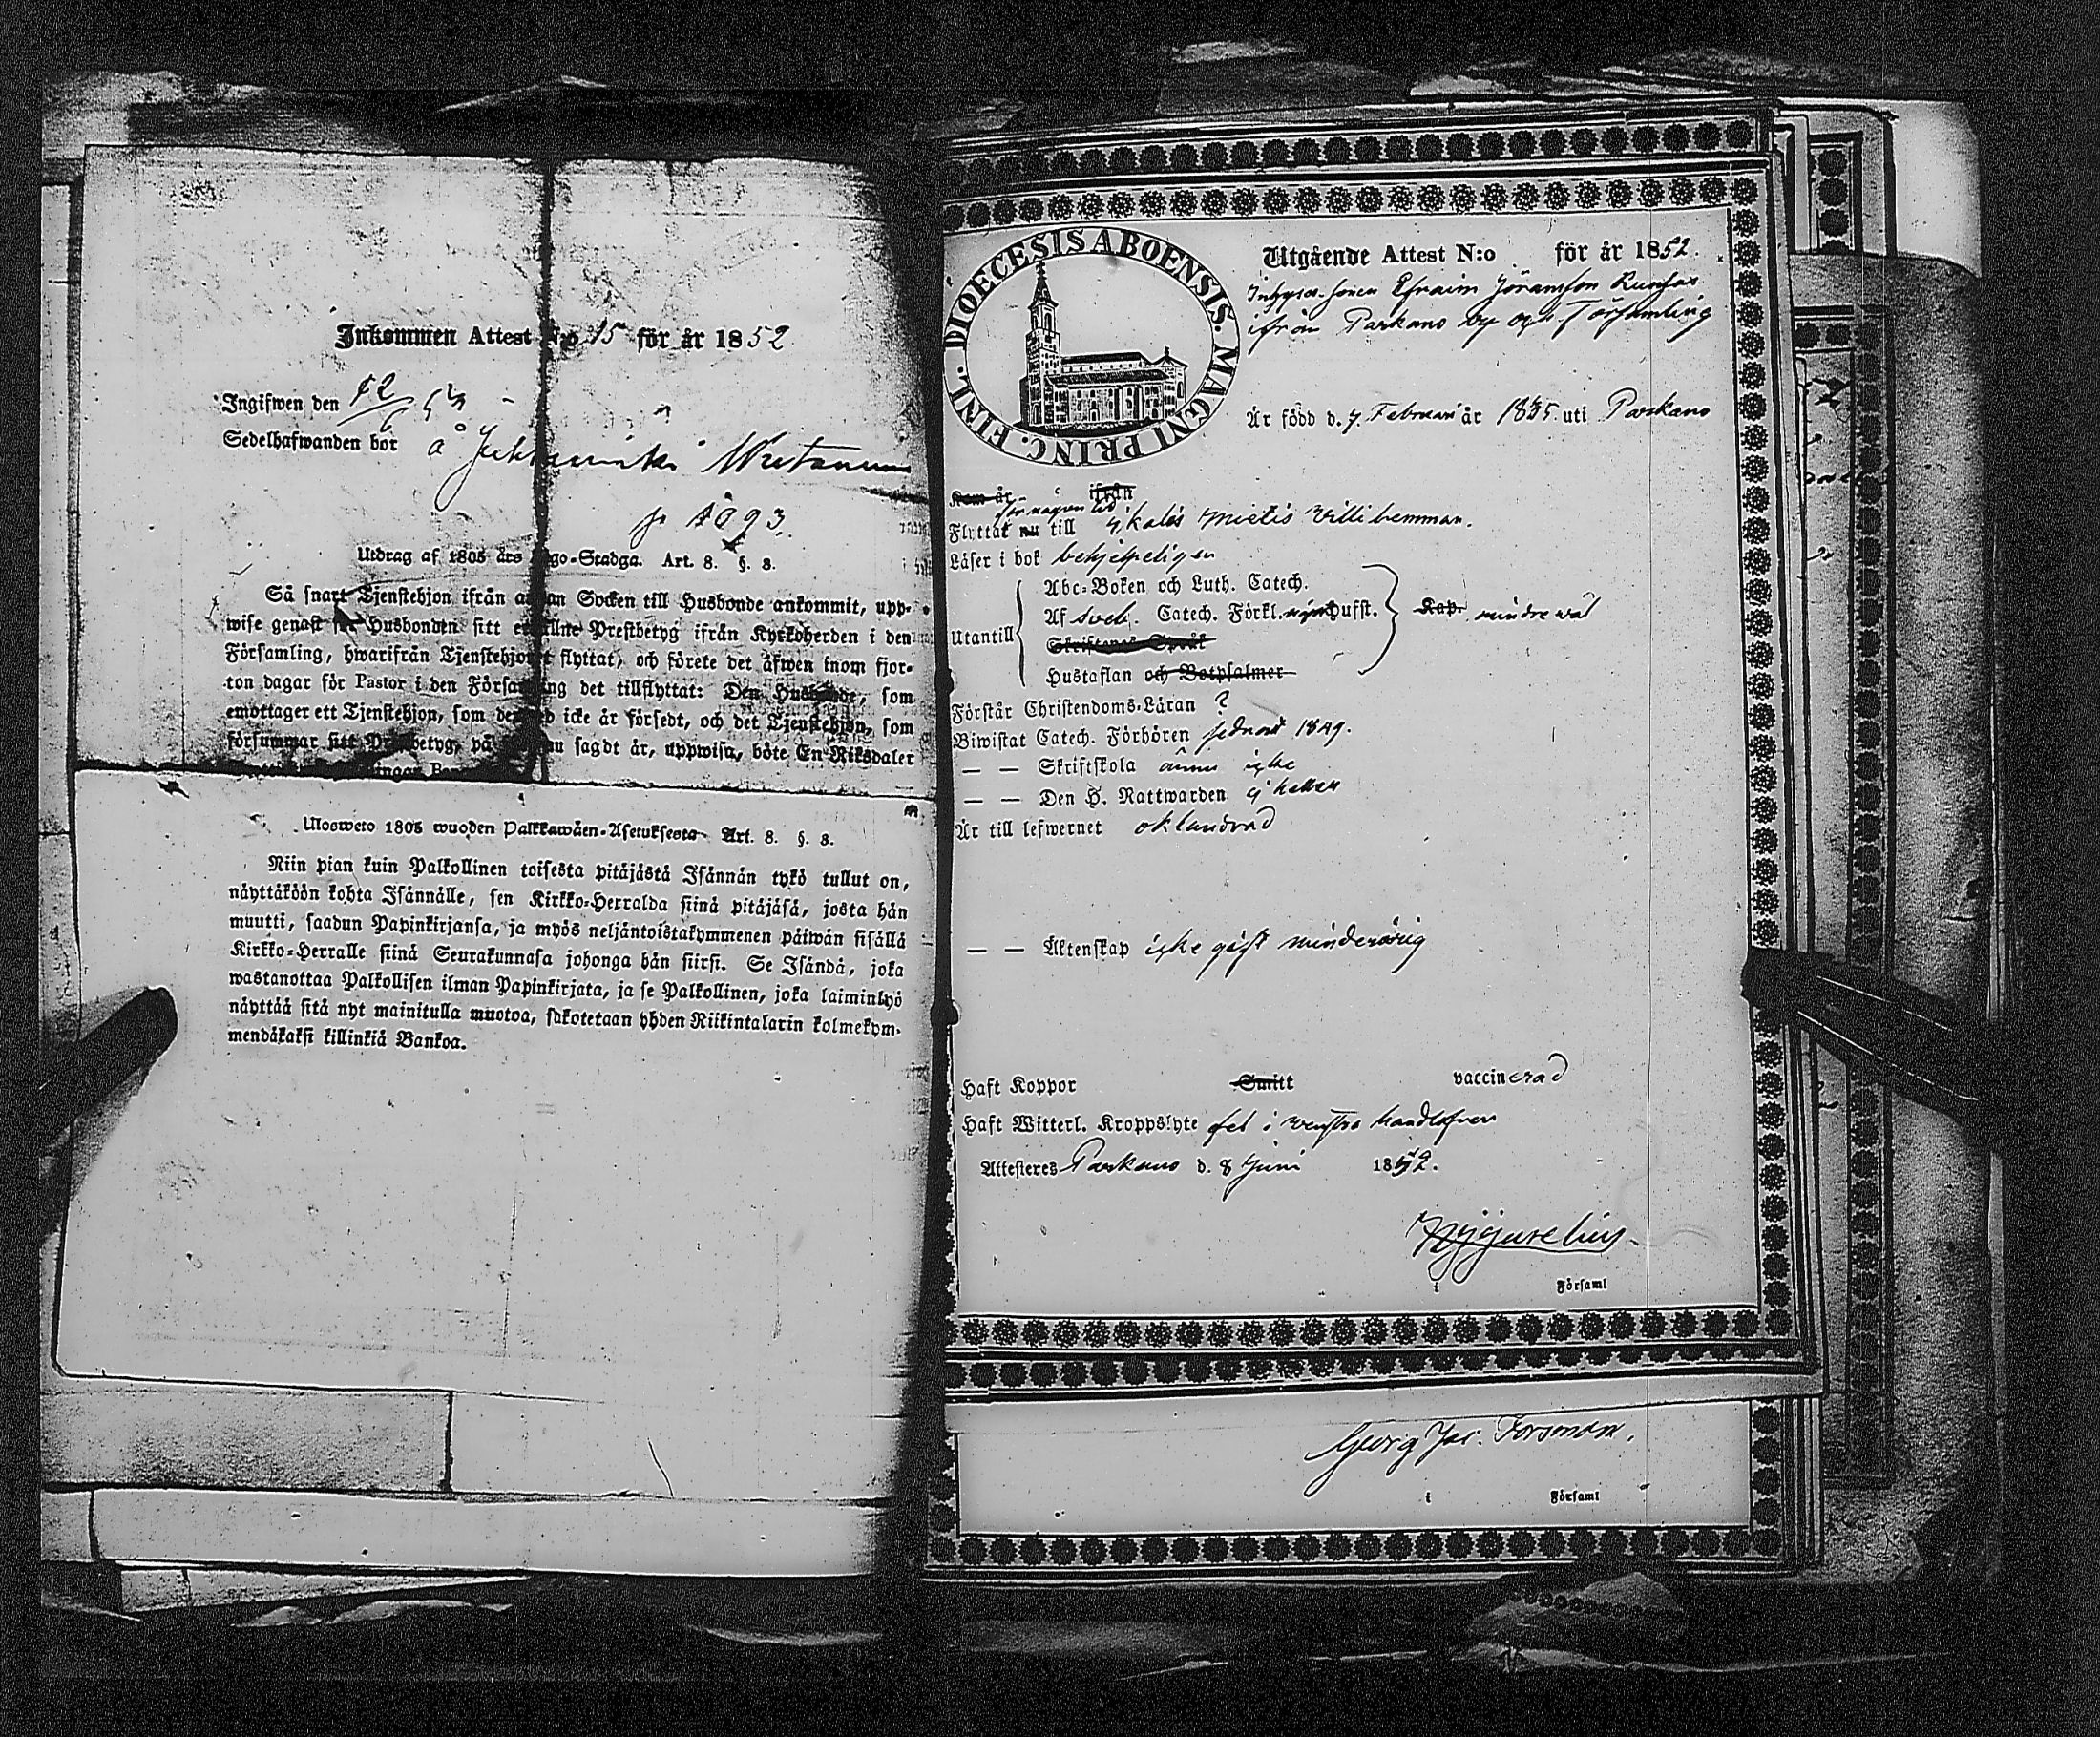 Inkommen Attest N:o 15 för år 1852
Ingifwen den 12/6 52
Sedelhafwanden bor å
p 1093.
Utdrag af 1805 års Lego-Stadga. Art. 8. §. 8.
Så snart Tjenstehjon ifrån annan Socken till Husbonde ankommit, upp-
wise genast för Husbonden sitt erhållne Prestbetyg ifrån Kyrkoherden i den
Församling, hwarifrån Tjenstehjonet flyttat, och förete det äfwen inom fjor-
ton dagar för Pastor i den Församling det tillflyttat: Den Husbonde, som
emottager ett Tjenstehjon, som dermed icke är försedt, och det Tjenstehjon, som
försummar sitt Prestbetyg, på sagdt är, uppwisa, böte En Riksdaler
Ulosweto 1805 wuoden Palkkawäen-Asetuksesta. Art. 8. §. 8.
Niin pian kuin Palkollinen toisesta pitäjästä Isännän tykö tullut on,
näyttäköön kohta Isännälle, sen Kirkko-Herralda siinä pitäjäsä, josta hän
muutti, saadun Papinkirjansa, ja myös neljäntoistakymmenen päiwän sisällä
Kirkko-Herralle siinä Seurakunnasa johonga hän siirsi. Se Isändä, joka
wastanottaa Palkollisen ilman Papinkirjata, ja se Palkollinen, joka laiminlyö
näyttää sitä nyt mainitulla muotoa, sakotetaan yhden Riikintalarin kolmekym-
mendäkaksi killinkiä Bankoa.
DIOECESIS ABOENSIS. MAGNI PRINC. FINL.
Utgående Attest N:o för år 1852.
Inhyses-sonen Efraim Jöransson
ifrån Parkano by och Församling
Är född d. 7 Februari år 1835 uti Parkano
Kom år ifrån
för någon tid
Flyttat nu till Ikalis Mietis Willi hemman.
Läser i bok behjelpeligen
Utantill
Abc-Boken och Luth. Catech.
Af Sveb. Catech. Förkl. Hufst.
Skriftenes Språk
Hustaflan och Botpsalmer
Kap. mindre wäl
Förstår Christendoms-Läran ?
Biwistat Catech. Förhören sednast 1849.
— — Skriftskola ännu icke
— — Den H. Nattwarden ej heller
Är till lefwernet oklandrad
— — Äktenskap icke gift minderårig
Haft Koppor Smitt vaccinerad
Haft Witterl. Kroppslyte fel i wenstra handlofwen
Attesteres Parkano d. 8 Juni 1852.
i Församl
Georg Jac. Forsman.
i Församl